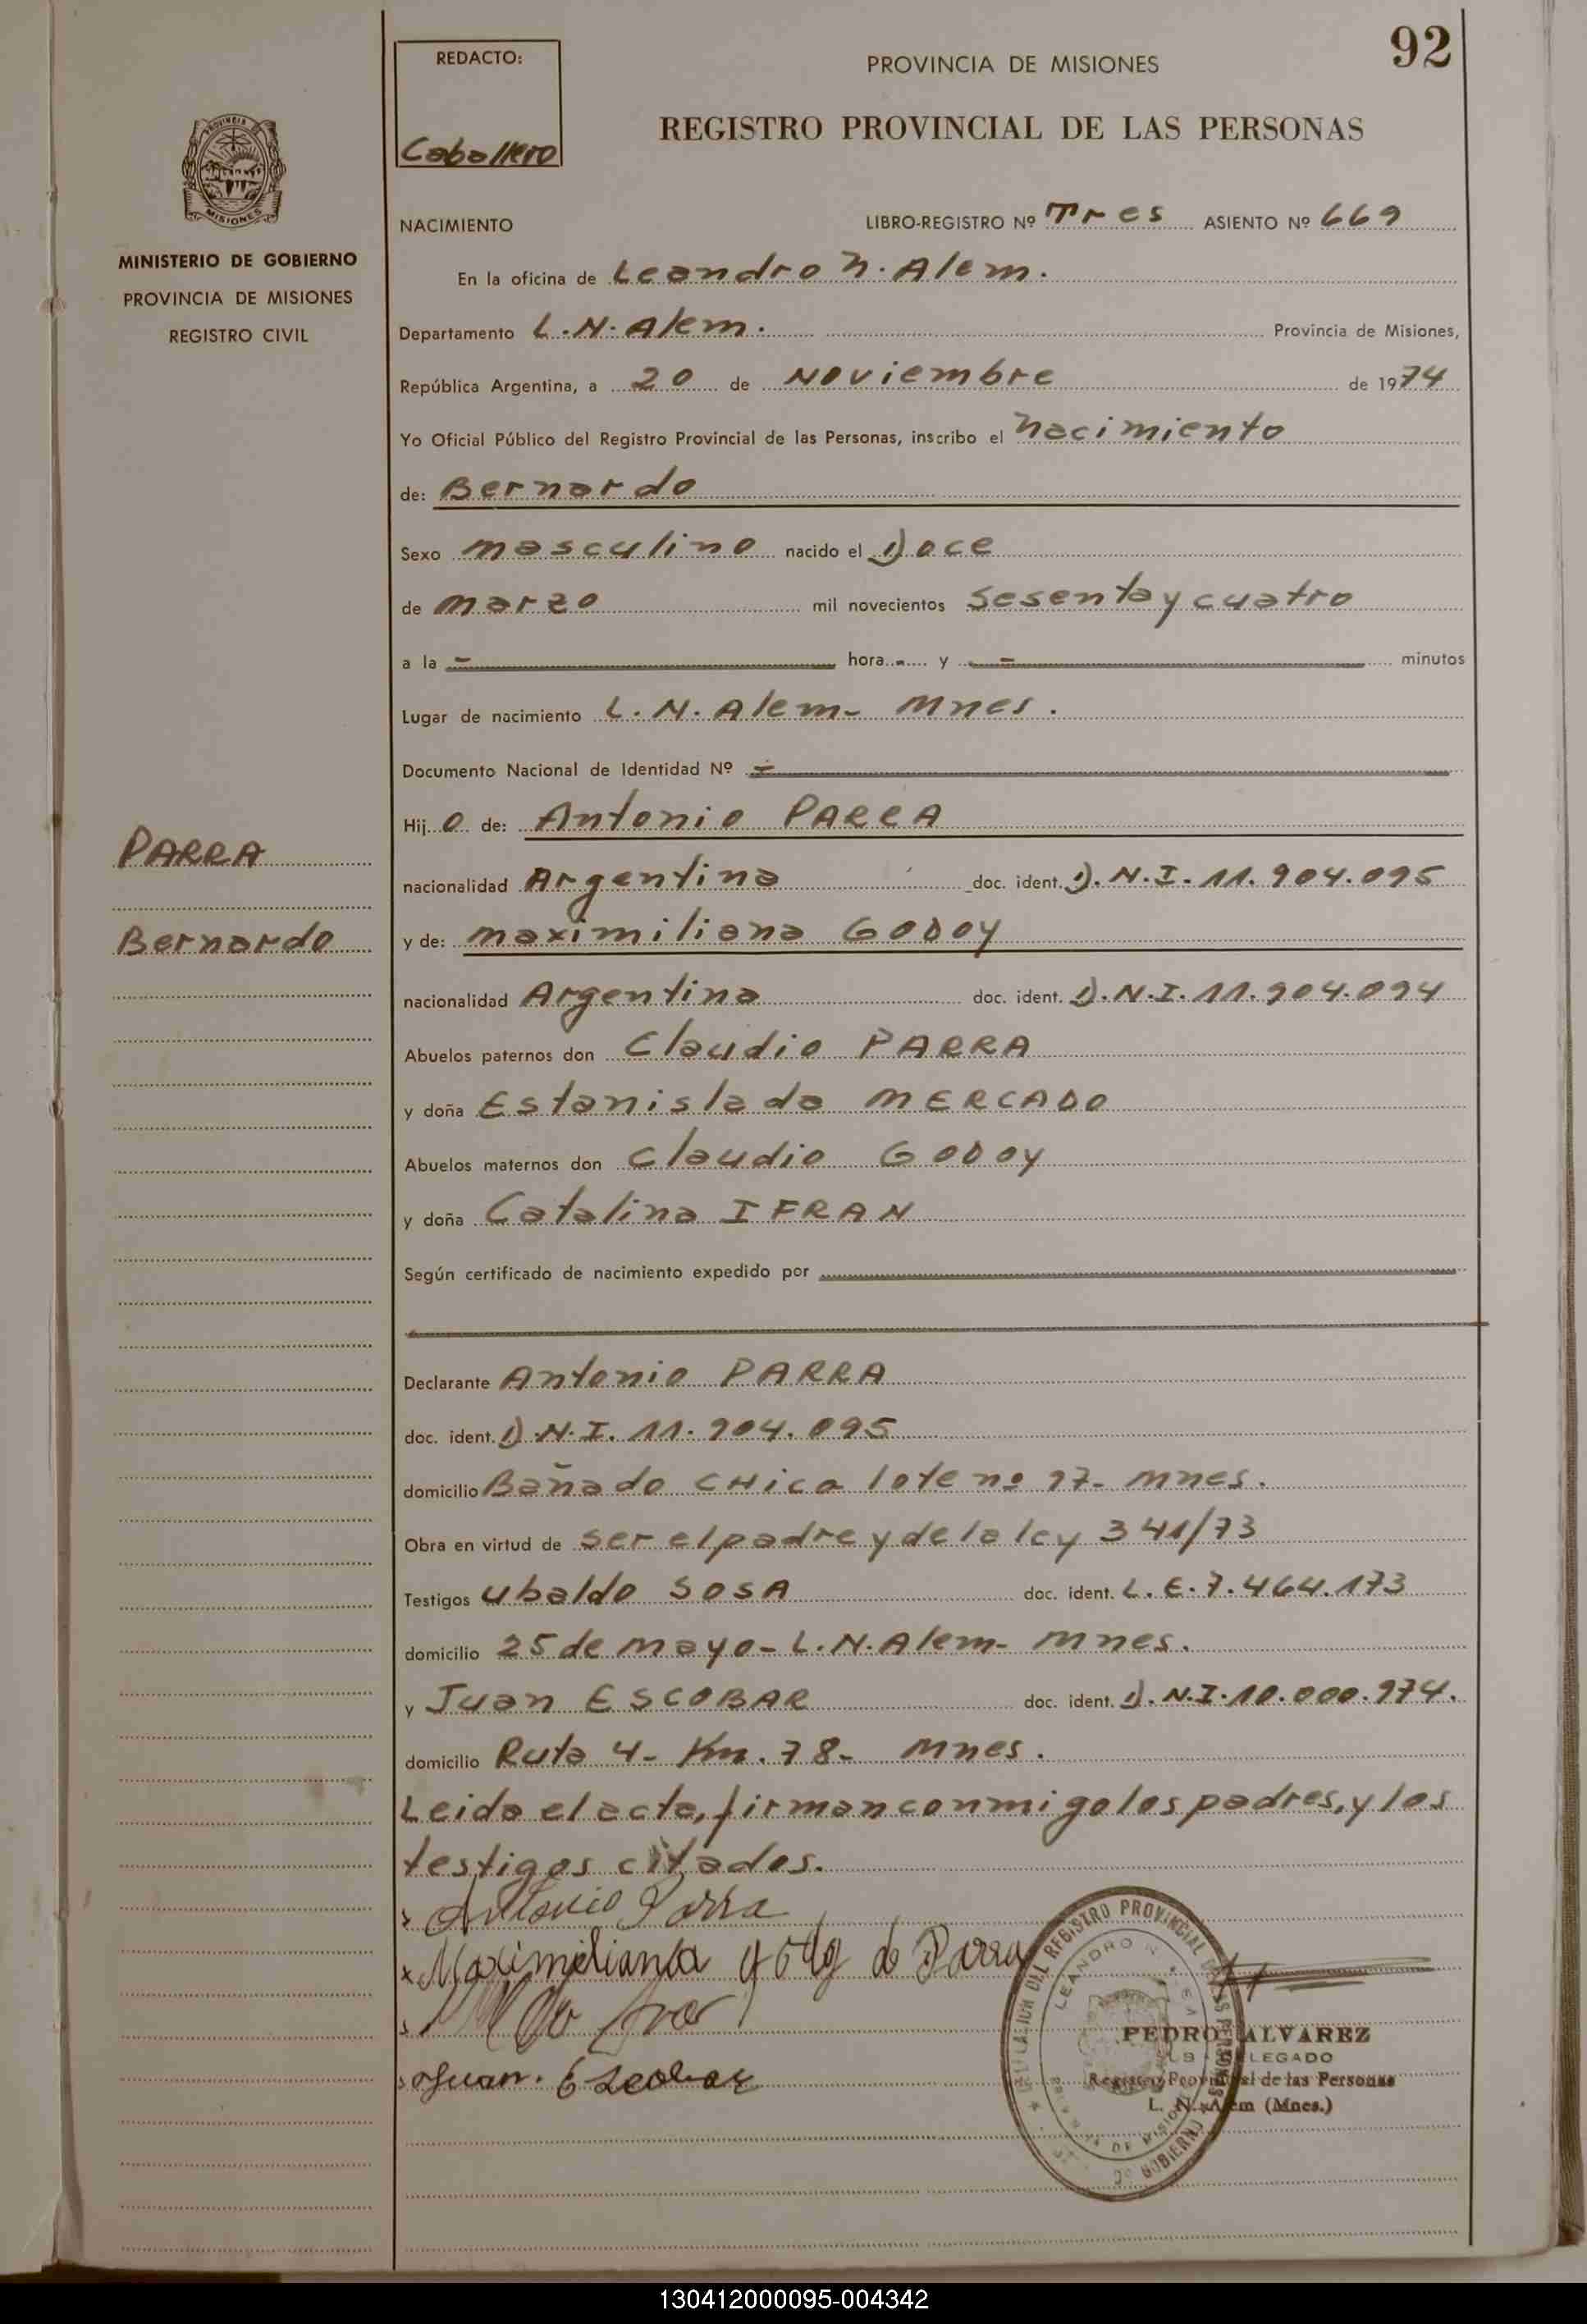 92
REDACTO:
Caballero
PROVINCIA DE MISIONES
REGISTRO PROVINCIAL DE LAS PERSONAS
PROVINCIA DE
MISIONES
MINISTERIO DE GOBIERNO
PROVINCIA DE MISIONES
REGISTRO CIVIL
NACIMIENTO LIBRO-REGISTRO Nº Tres ASIENTO Nº 669
En la oficina de Leandro N. Alem.
Departamento L.N. Alem. Provincia de Misiones,
República Argentina, a 20 de Noviembre de 1974
Yo Oficial Público del Registro Provincial de las Personas, inscribo el nacimiento
de: Bernardo
Sexo masculino nacido el Doce
de marzo mil novecientos sesenta y cuatro
a la - hora - y - minutos
Lugar de nacimiento L.N. Alem- Mnes.
Documento Nacional de Identidad Nº -
Hijo de: Antonio PARRA
PARRA
nacionalidad Argentina doc. ident. D.N.I. 11.904.095
Bernardo
y de: maximiliana GODOY
nacionalidad Argentina doc. ident. D.N.I. 11.904.094
Abuelos paternos don Claudio PARRA
y doña Estanislada MERCADO
Abuelos maternos don Claudio GODOY
y doña Catalina IFRAN
Según certificado de nacimiento expedido por
Declarante Antonio PARRA
doc. ident. D.N.I. 11.904.095
domicilio Bañado CHico lote nº 17- mnes.
Obra en virtud de ser el padre y de la ley 341/73
Testigos Ubaldo SOSA doc. ident. L.E. 7.464.173
domicilio 25 de mayo- L.N. Alem- mnes.
y Juan ESCOBAR doc. ident. D.N.I. 10.000.974.
domicilio Ruta 4- Km. 78- mnes.
Leida el acta, firman conmigo los padres, y los
testigos citados.
Antonio Parra
Maximilianla de Parra
Juan. Escobar
PEDRO ALVAREZ
DELEGADO
Registro Provincial de las Personas
L. N. Alem (Mnes.)
130412000095-004342